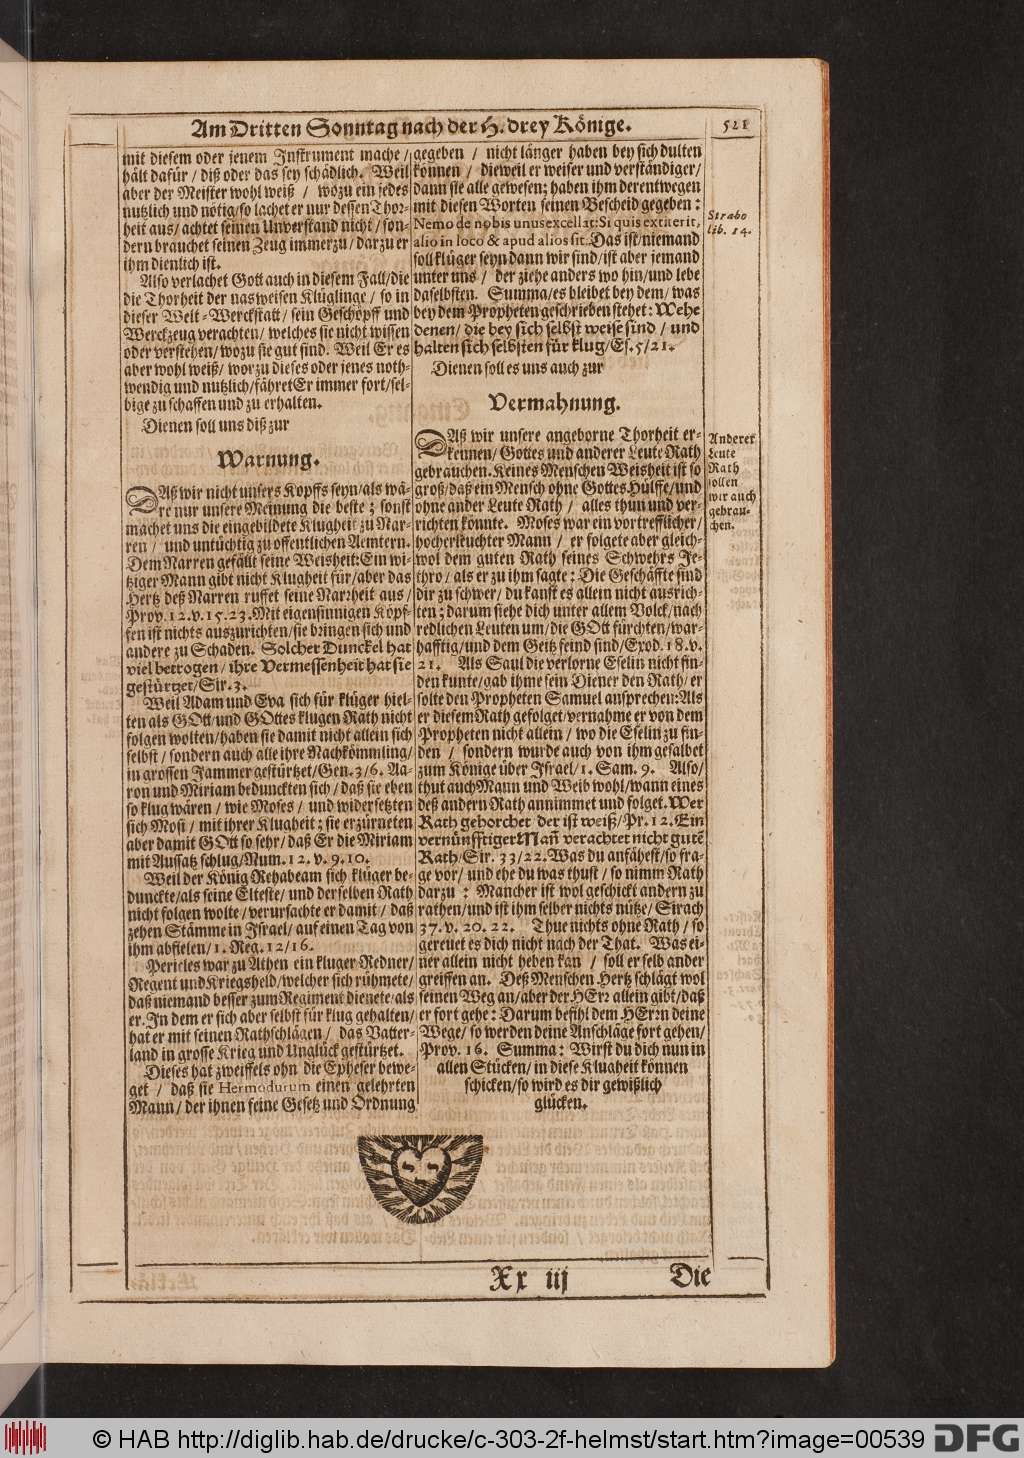 Am Dritten Sonntag nach der H. drey Könige.
521
mit diesem oder jenem Instrument mache /
hält dafür / diß oder das sey schädlich. Weil
aber der Meister wohl weiß / wozu ein jedes
nutzlich und nötig / so lachet er nur dessen Thor-
heit aus / achtet seinen Unverstand nicht / son-
dern brauchet seinen Zeug immerzu / darzu er
ihm dienlich ist.
Also verlachet Gott auch in diesem Fall / die
die Thorheit der nasweisen Klüglinge / so in
dieser Welt-Werckstatt / sein Geschöpff und
Werckzeug verachten / welches sie nicht wissen
oder verstehen / wozu sie gut sind. Weil Er es
aber wohl weiß / worzu dieses oder jenes noth-
wendig und nutzlich / fähret Er immer fort / sel-
bige zu schaffen und zu erhalten.
Dienen soll uns diß zur
Warnung.
Daß wir nicht unsers Kopffs seyn / als wä-
re nur unsere Meinung die beste; sonst
machet uns die eingebildete Klugheit zu Nar-
ren / und untüchtig zu offentlichen Aemtern.
Dem Narren gefällt seine Weisheit: Ein wi-
tziger Mann gibt nicht Klugheit für / aber das
Hertz deß Narren ruffet seine Narrheit aus /
Prov. 12. v. 15. 23. Mit eigensinnigen Köpf-
fen ist nichts auszurichten / sie bringen sich und
andere zu Schaden. Solcher Dunckel hat
viel betrogen / ihre Vermessenheit hat sie
gestürtzet / Sir. 3.
Weil Adam und Eva sich für klüger hiel-
ten als GOtt / und GOttes klugen Rath nicht
folgen wolten / haben sie damit nicht allein sich
selbst / sondern auch alle ihre Nachkömmling /
in grossen Jammer gestürtzet / Gen. 3 / 6. Aa-
ron und Miriam bedunckten sich / daß sie eben
so klug wären / wie Moses / und widersetzten
sich Mosi / mit ihrer Klugheit; sie erzürneten
aber damit GOtt so sehr / daß Er die Miriam
mit Aussatz schlug / Num. 12. v. 9. 10.
Weil der König Rehabeam sich klüger be-
dunckte / als seine Elteste / und derselben Rath
nicht folgen wolte / verursachte er damit / daß
zehen Stämme in Israel / auf einen Tag von
ihm abfielen / 1. Reg. 12 / 16.
Pericles war zu Athen ein kluger Redner /
Regent und Kriegsheld / welcher sich rühmete /
daß niemand besser zum Regiment dienete / als
er. In dem er sich aber selbst für klug gehalten /
hat er mit seinen Rathschlägen / das Vatter-
land in grosse Krieg und Unglück gestürtzet.
Dieses hat zweiffels ohn die Epheser bewe-
get / daß sie Hermodurum einen gelehrten
Mann / der ihnen feine Gesetz und Ordnung
gegeben / nicht länger haben bey sich dulten
können / dieweil er weiser und verständiger /
dann sie alle gewesen; haben ihm derentwegen
mit diesen Worten seinen Bescheid gegeben:
Nemo de nobis unus excellat: Si quis extiterit,
alio in loco & apud alios sit. Das ist / niemand
soll klüger seyn dann wir sind / ist aber jemand
unter uns / der ziehe anders wo hin / und lebe
daselbsten. Summa / es bleibet bey dem / was
bey dem Propheten geschrieben stehet: Wehe
denen / die bey sich selbst weise sind / und
halten sich selbsten für klug / Es. 5 / 21.
Dienen soll es uns auch zur
Vermahnung.
Daß wir unsere angeborne Thorheit er-
kennen / Gottes und anderer Leute Rath
gebrauchen. Keines Menschen Weisheit ist so
groß / daß ein Mensch ohne Gottes Hülffe / und
ohne ander Leute Rath / alles thun und ver-
richten könnte. Moses war ein vortrefflicher /
hocherleuchter Mann / er folgete aber gleich-
wol dem guten Rath seines Schwehrs Je-
thro / als er zu ihm sagte: Die Geschäffte sind
dir zu schwer / du kanst es allein nicht ausrich-
ten; darum siehe dich unter allem Volck / nach
redlichen Leuten um / die GOtt fürchten / war-
hafftig / und dem Geitz feind sind / Exod. 18. v.
21. Als Saul die verlorne Eselin nicht fin-
den kunte / gab ihme sein Diener den Rath / er
solte den Propheten Samuel ansprechen: Als
er diesem Rath gefolget / vernahme er von dem
Propheten nicht allein / wo die Eselin zu fin-
den / sondern wurde auch von ihm gesalbet
zum Könige über Israel / 1. Sam. 9. Also /
thut auch Mann und Weib wohl / wann eines
deß andern Rath annimmet und folget. Wer
Rath gehorchet / der ist weiß / Pr. 12. Ein
vernünfftiger Mañ verachtet nicht gutẽ
Rath / Sir. 33 / 22. Was du anfähest / so fra-
ge vor / und ehe du was thust / so nimm Rath
darzu: Mancher ist wol geschickt andern zu
rathen / und ist ihm selber nichts nütze / Sirach
37. v. 20. 22. Thue nichts ohne Rath / so
gereuet es dich nicht nach der That. Was ei-
ner allein nicht heben kan / soll er selb ander
greiffen an. Deß Menschen Hertz schlägt wol
seinen Weg an / aber der HErr allein gibt / daß
er fort gehe: Darum befihl dem HErrn deine
Wege / so werden deine Anschläge fort gehen /
Prov. 16. Summa: Wirst du dich nun in
allen Stücken / in diese Klugheit können
schicken / so wird es dir gewißlich
glücken.
Strabo
lib. 14.
Anderer
Leute
Rath
sollen
wir auch
gebrau-
chen.
Xx iij
Die
© HAB http://diglib.hab.de/drucke/c-303-2f-helmst/start.htm?image=00539
DFG